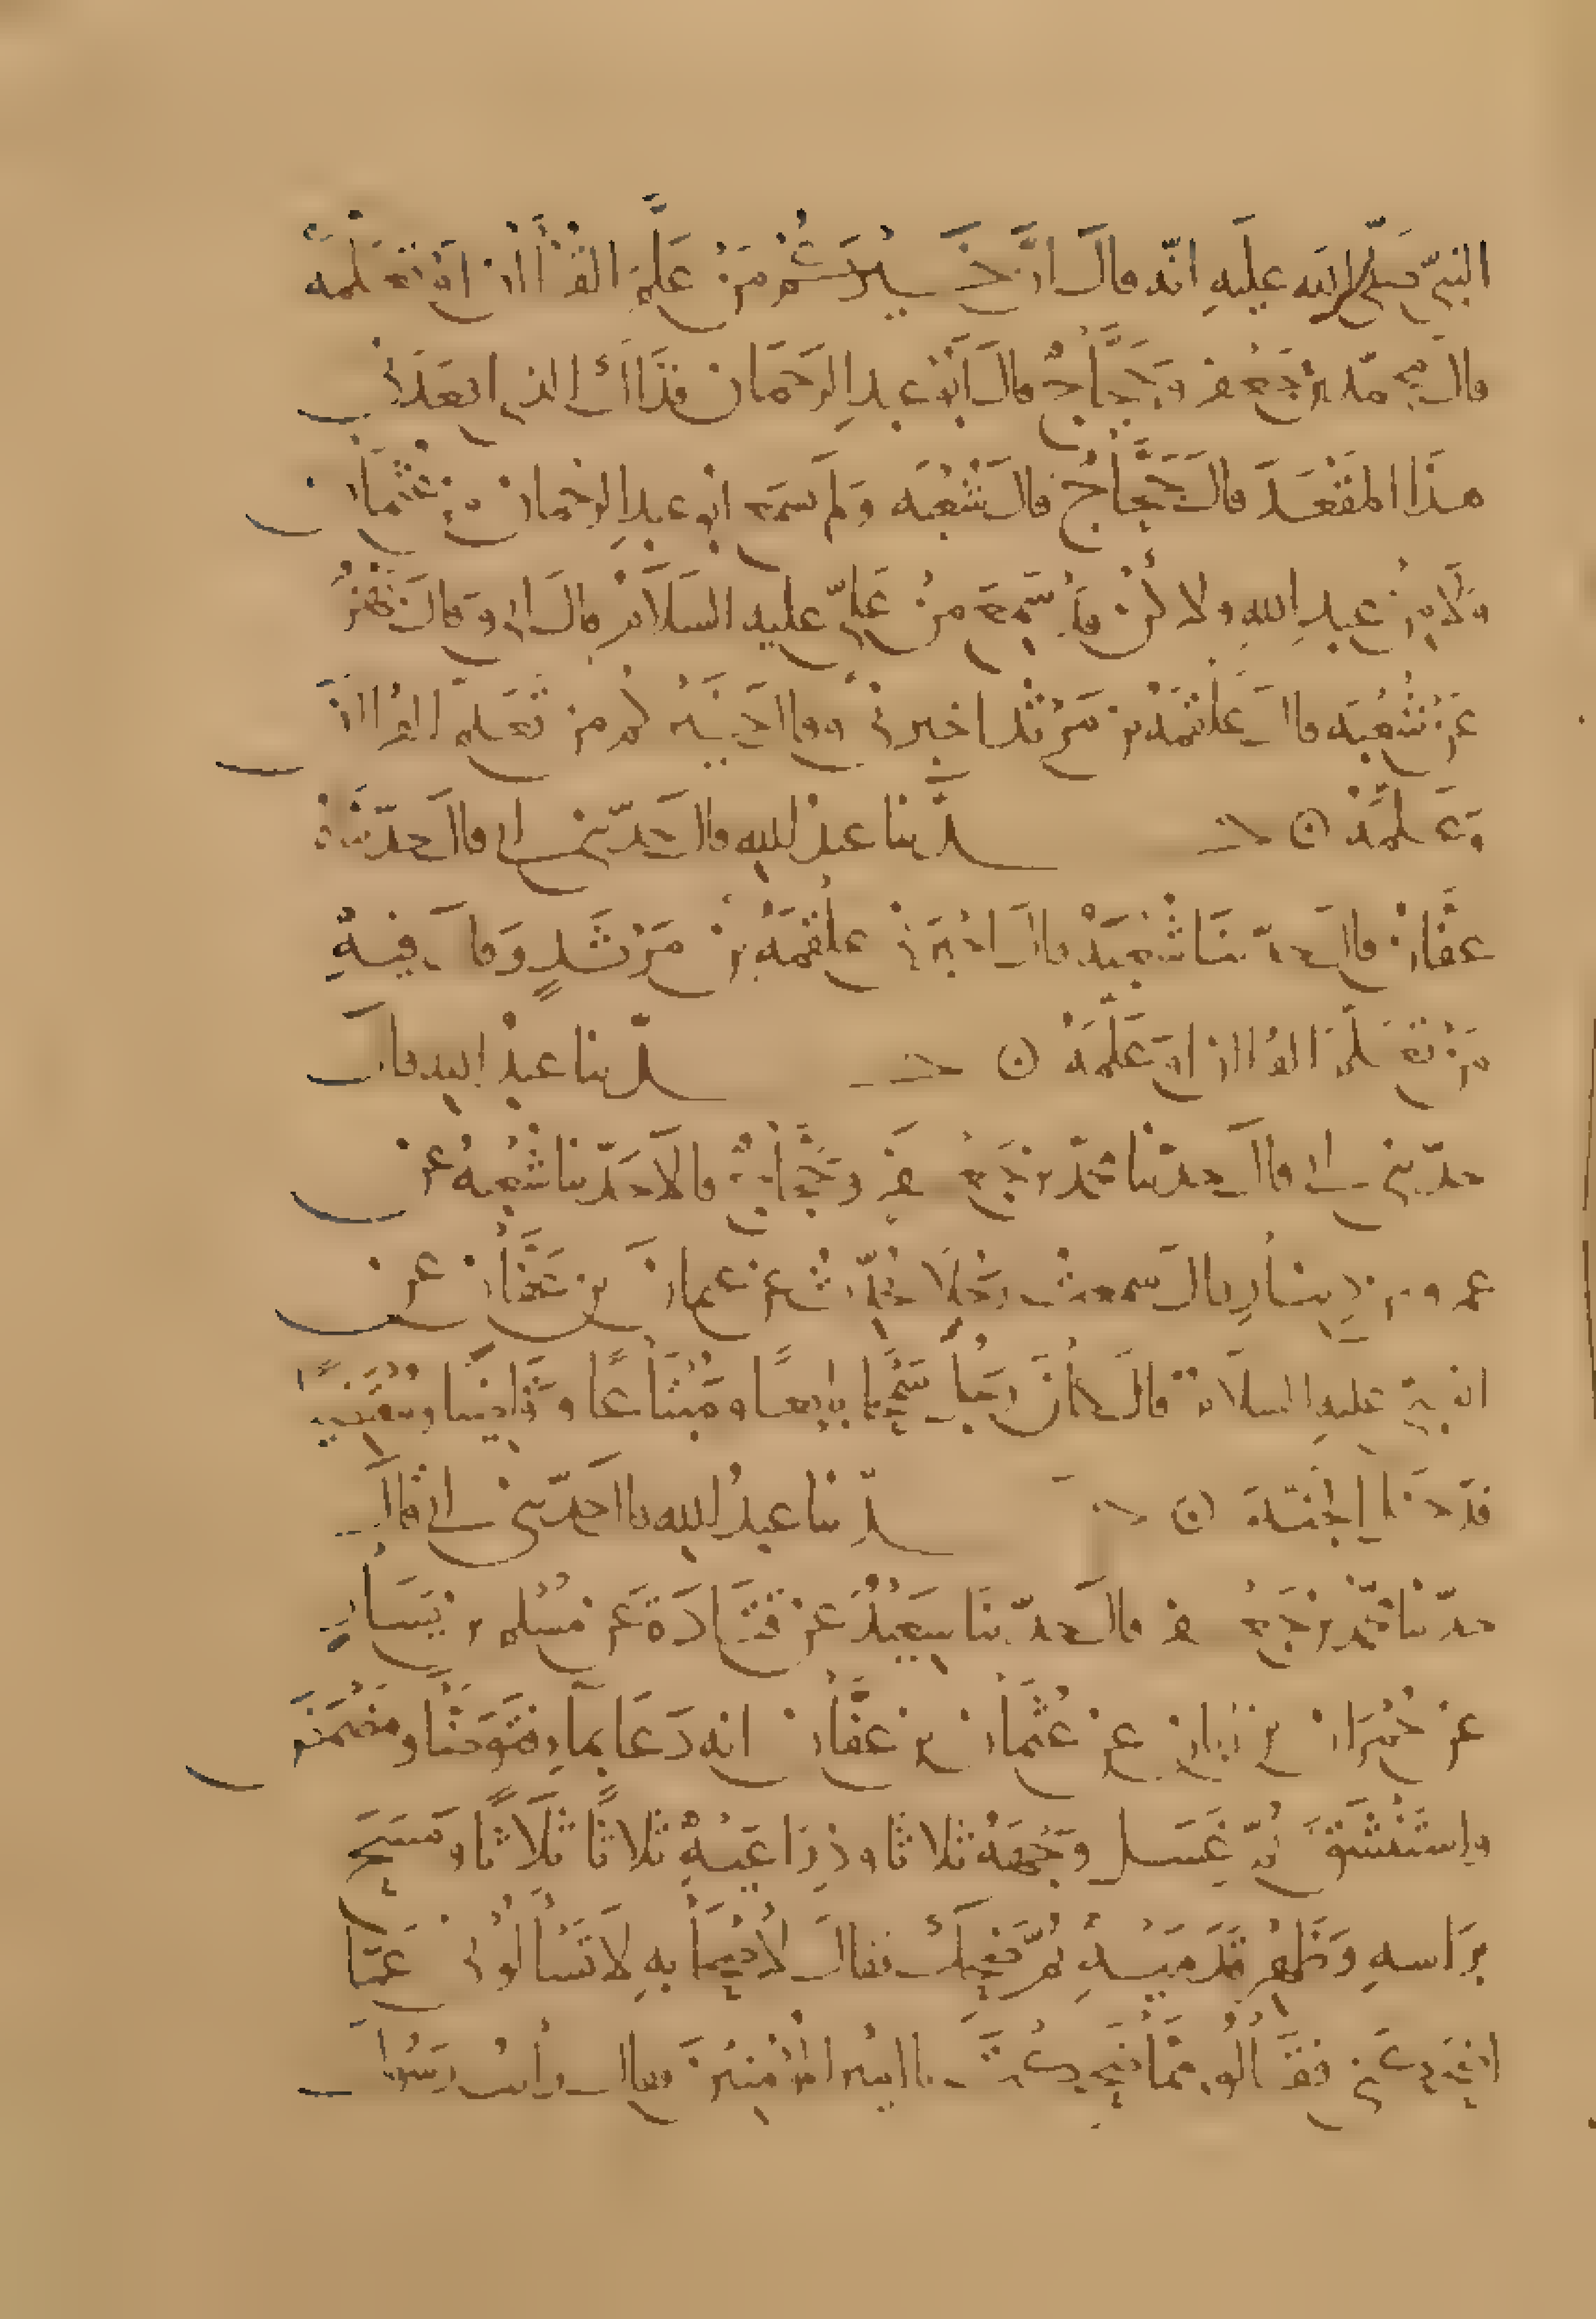 النبيّ صلّى الله عليه انّه قال انّ خيركم من علّم القراان او تعلّمه
قال محمّد بن جعفر وحجّاج قال ابو عبد الرحمان فذااك الذي اقعدني
هذا المقعد قال حجّاج قال شعبه ولم يسمع ابو عبد الرحمان من عثمان
ولا من عبد الله ولاكن قد سمع من عليّ عليه السلام قال ابي وقال بهز
عن شعبه قال علقمه بن مرثد اخبرني وقال خيركم من تعلّم القراان
وعلّمه ن حدّثنا عبد الله قال حدّثني ابي قال حدّثنا
عفّان قال حدّثنا شعبه قال اخبرني علقمه بن مرثد وقال فيه
من تعلّم القراان او علّمه ن حدّثنا عبد الله قال
حدّثني ابي قال حدّثنا محمّد بن جعفر وحجّاج قالا حدّثنا شعبه عن
عمرو بن دينار قال سمعت رجلا يحدّث عن عثمان بن عفّان عن
النبيّ عليه السلام قال كان رجل سمحا بايعا ومبتاعا وقاضيا ومقتضيا
فدخل الجنّة ن حدّثنا عبد الله قال حدّثني ابي قال
حدّثنا محمّد بن جعفر قال حدّثنا سعيد عن قتادة عن مسلم بن يسار
عن حمران بن ابان عن عثمان بن عفّان انه دعا بماء فتوضّا ومضمض
واستنشق ثمّ غسل وجهه ثلاثا وذراعيه ثلاثا ثلاثا ومسح
براسه وظهر قدميه ثمّ ضحك فقال لاصحابه لا تسألوني عمّا
اضحكني فقالوا ممّا ضحكت يا امير المؤمنين قال رأيت رسول